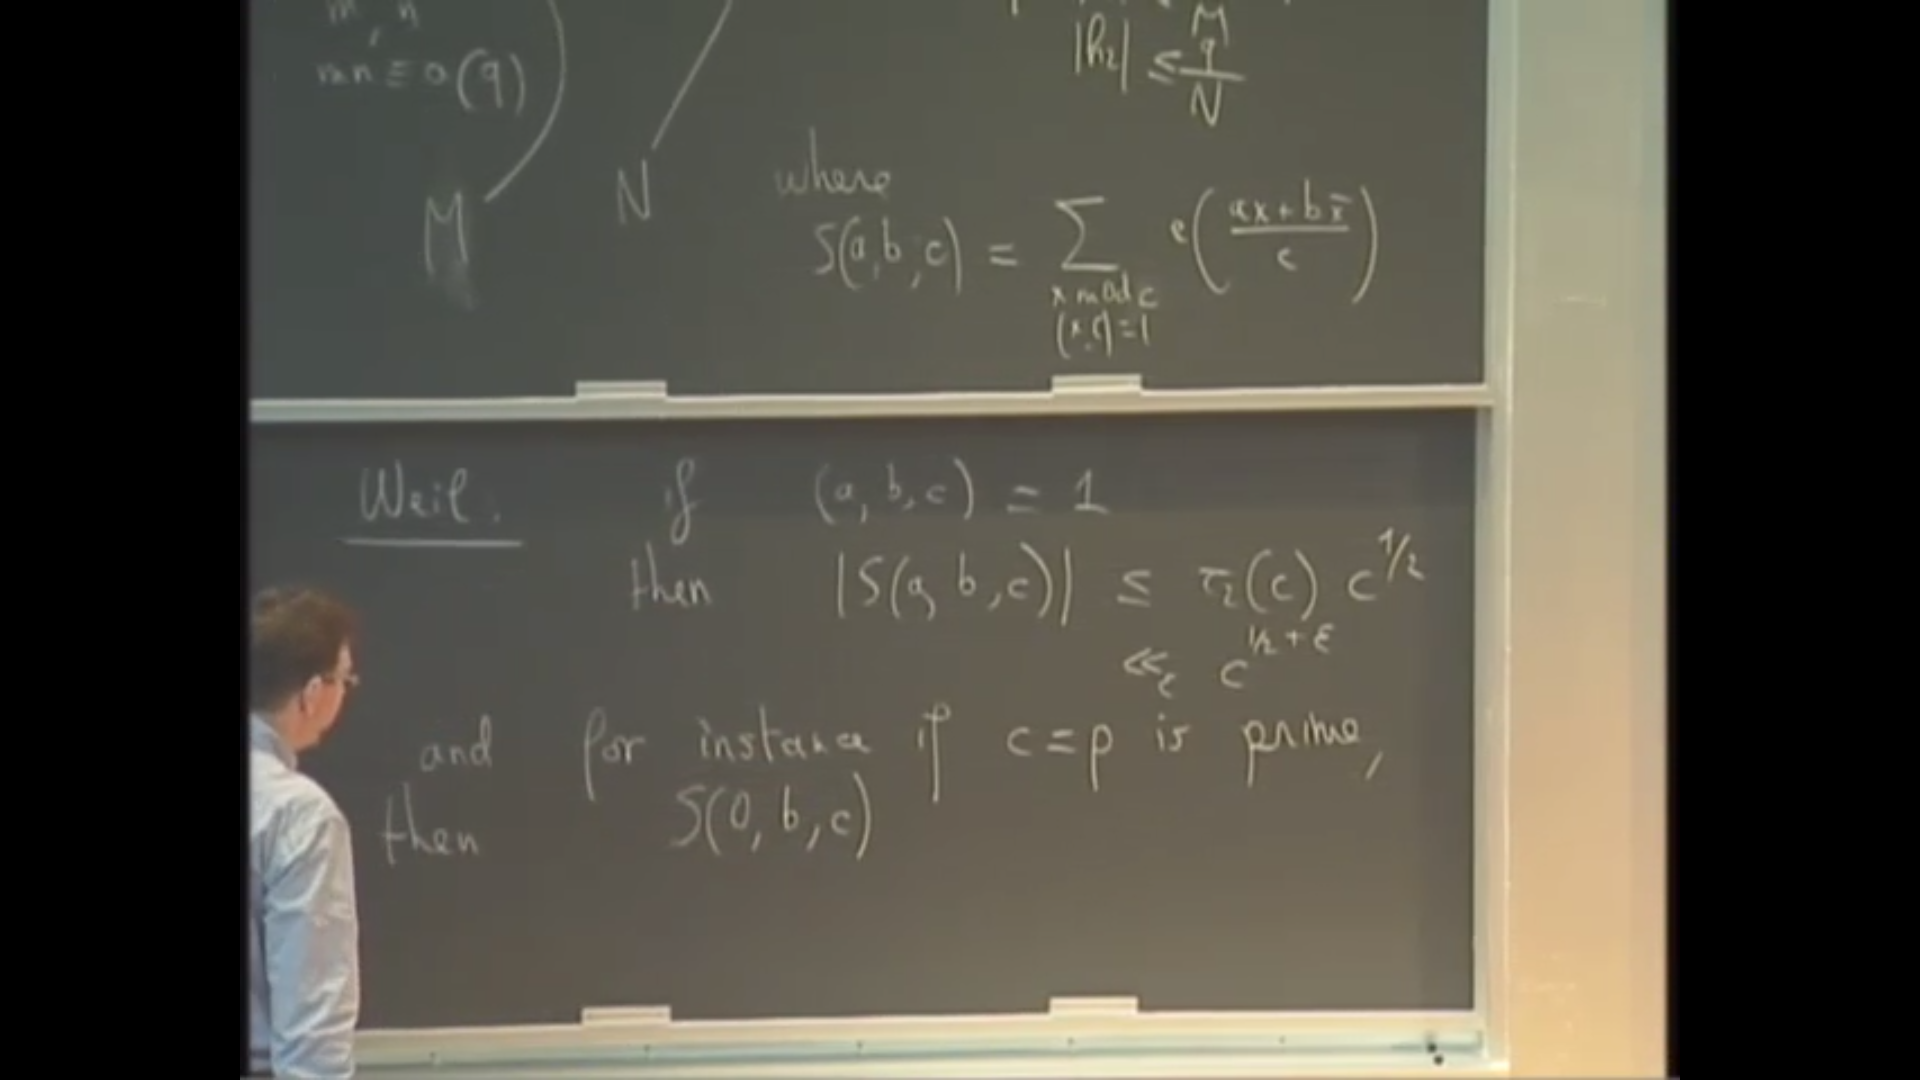 m, n
mn ≡ a (q)
M
N
|h₂| ≤ q/N
M
where
S(a,b,c) = ∑ e((ax + bx̄)/c)
x mod c
(x,c)=1
Weil. if (a, b, c) = 1
then |S(a, b, c)| ≤ τ₂(c) c^{1/2}
≪_ε c^{1/2 + ε}
and for instance if c = p is prime,
then S(0, b, c)